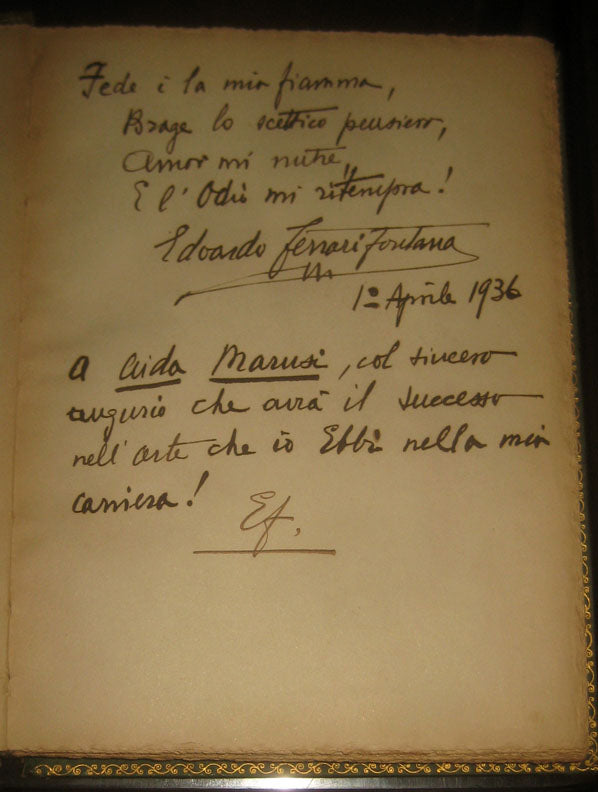 Fede è la mia fiamma,
Brage lo scettico pensiero,
Amor mi nutre,
E l'Odio mi ritempra!
Edoardo Ferrari Fontana
1º Aprile 1936
A Aida Marusi, col sincero
augurio che avrà il successo
nell'arte che io Ebbi nella mia
carriera!
Ef.